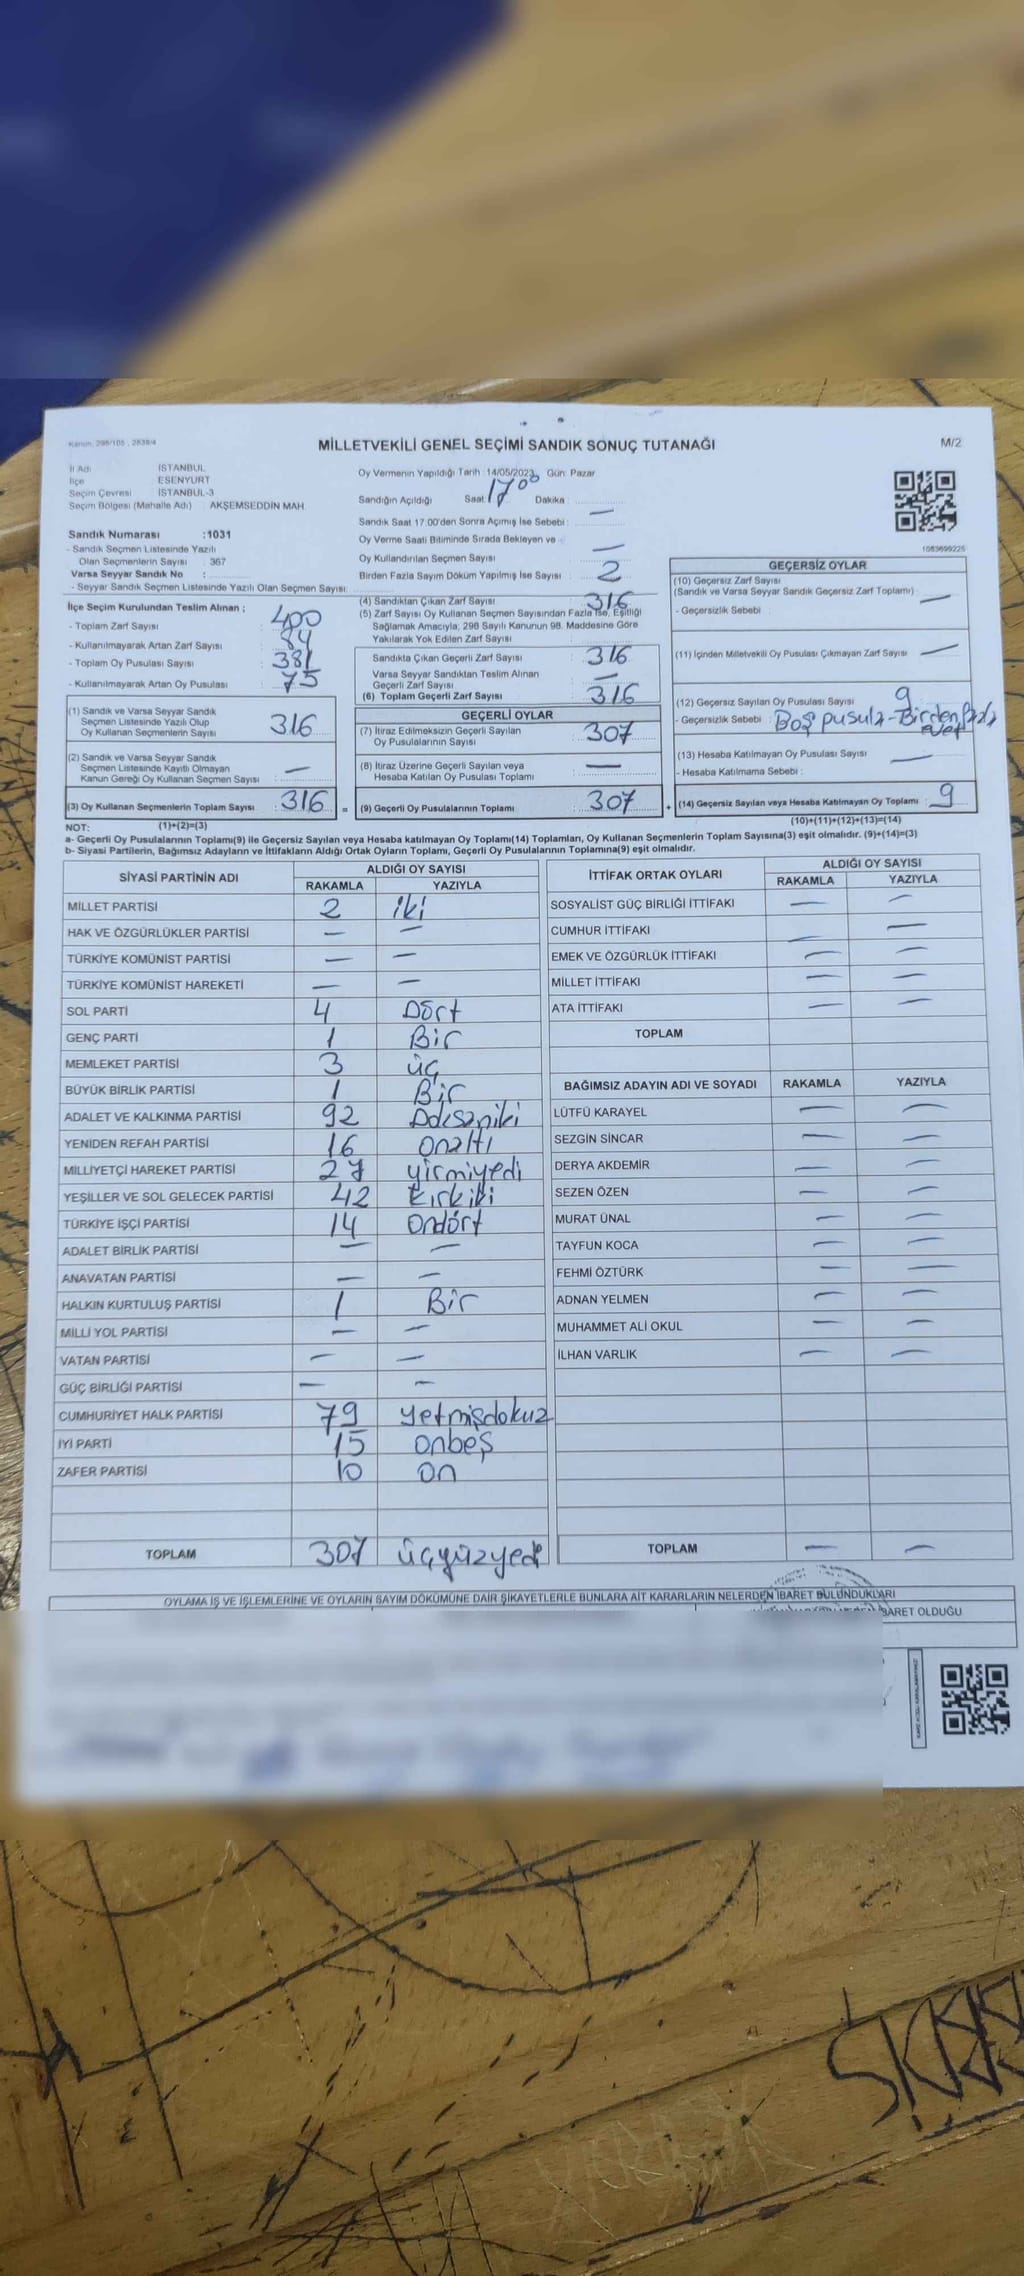 Kanun: 298/105 , 2839/4
MİLLETVEKİLİ GENEL SEÇİMİ SANDIK SONUÇ TUTANAĞI
M/2
İl Adı İSTANBUL
İlçe ESENYURT
Seçim Çevresi İSTANBUL-3
Seçim Bölgesi (Mahalle Adı) : AKŞEMSEDDİN MAH.
Sandık Numarası :1031
- Sandık Seçmen Listesinde Yazılı
Olan Seçmenlerin Sayısı : 367
Varsa Seyyar Sandık No :
- Seyyar Sandık Seçmen Listesinde Yazılı Olan Seçmen Sayısı:
Oy Vermenin Yapıldığı Tarih :14/05/2023 Gün: Pazar
Sandığın Açıldığı Saat 17 00 Dakika :
Sandık Saat 17.00'den Sonra Açımış İse Sebebi : —
Oy Verme Saati Bitiminde Sırada Bekleyen ve
Oy Kullandırılan Seçmen Sayısı —
Birden Fazla Sayım Döküm Yapılmış İse Sayısı 2
1083699225
İlçe Seçim Kurulundan Teslim Alınan ;
- Toplam Zarf Sayısı : 400
- Kullanılmayarak Artan Zarf Sayısı : 84
- Toplam Oy Pusulası Sayısı : 381
- Kullanılmayarak Artan Oy Pusulası : 75
(1) Sandık ve Varsa Seyyar Sandık
Seçmen Listesinde Yazılı Olup
Oy Kullanan Seçmenlerin Sayısı : 316
(2) Sandık ve Varsa Seyyar Sandık
Seçmen Listesinde Kayıtlı Olmayan
Kanun Gereği Oy Kullanan Seçmen Sayısı : —
(3) Oy Kullanan Seçmenlerin Toplam Sayısı : 316
(1)+(2)=(3)
(4) Sandıktan Çıkan Zarf Sayısı : 316
(5) Zarf Sayısı Oy Kullanan Seçmen Sayısından Fazla İse, Eşitliği
Sağlamak Amacıyla; 298 Sayılı Kanunun 98. Maddesine Göre
Yakılarak Yok Edilen Zarf Sayısı :
Sandıkta Çıkan Geçerli Zarf Sayısı : 316
Varsa Seyyar Sandıktan Teslim Alınan
Geçerli Zarf Sayısı : —
(6) Toplam Geçerli Zarf Sayısı : 316
GEÇERLİ OYLAR
(7) İtiraz Edilmeksizin Geçerli Sayılan
Oy Pusulalarının Sayısı : 307
(8) İtiraz Üzerine Geçerli Sayılan veya
Hesaba Katılan Oy Pusulası Toplamı : —
= (9) Geçerli Oy Pusulalarının Toplamı : 307 +
GEÇERSİZ OYLAR
(10) Geçersiz Zarf Sayısı
(Sandık ve Varsa Seyyar Sandık Geçersiz Zarf Toplamı) : —
- Geçersizlik Sebebi :
(11) İçinden Milletvekili Oy Pusulası Çıkmayan Zarf Sayısı : —
(12) Geçersiz Sayılan Oy Pusulası Sayısı : 9
- Geçersizlik Sebebi : Boş pusula - Birden fazla
evet
(13) Hesaba Katılmayan Oy Pusulası Sayısı : —
- Hesaba Katılmama Sebebi :
(14) Geçersiz Sayılan veya Hesaba Katılmayan Oy Toplamı : 9
(10)+(11)+(12)+(13)=(14)
NOT:
a- Geçerli Oy Pusulalarının Toplamı(9) ile Geçersiz Sayılan veya Hesaba katılmayan Oy Toplamı(14) Toplamları, Oy Kullanan Seçmenlerin Toplam Sayısına(3) eşit olmalıdır. (9)+(14)=(3)
b- Siyasi Partilerin, Bağımsız Adayların ve İttifakların Aldığı Ortak Oyların Toplamı, Geçerli Oy Pusulalarının Toplamına(9) eşit olmalıdır.
SİYASİ PARTİNİN ADI ALDIĞI OY SAYISI
RAKAMLA YAZIYLA
MİLLET PARTİSİ 2 iki
HAK VE ÖZGÜRLÜKLER PARTİSİ — —
TÜRKİYE KOMÜNİST PARTİSİ — —
TÜRKİYE KOMÜNİST HAREKETİ — —
SOL PARTİ 4 Dört
GENÇ PARTİ 1 Bir
MEMLEKET PARTİSİ 3 üç
BÜYÜK BİRLİK PARTİSİ 1 Bir
ADALET VE KALKINMA PARTİSİ 92 Doksaniki
YENİDEN REFAH PARTİSİ 16 onaltı
MİLLİYETÇİ HAREKET PARTİSİ 27 yirmiyedi
YEŞİLLER VE SOL GELECEK PARTİSİ 42 kırkiki
TÜRKİYE İŞÇİ PARTİSİ 14 Ondört
ADALET BİRLİK PARTİSİ — —
ANAVATAN PARTİSİ — —
HALKIN KURTULUŞ PARTİSİ 1 Bir
MİLLİ YOL PARTİSİ — —
VATAN PARTİSİ — —
GÜÇ BİRLİĞİ PARTİSİ — —
CUMHURİYET HALK PARTİSİ 79 yetmişdokuz
İYİ PARTİ 15 onbeş
ZAFER PARTİSİ 10 on
TOPLAM 307 üçyüzyedi
İTTİFAK ORTAK OYLARI ALDIĞI OY SAYISI
RAKAMLA YAZIYLA
SOSYALİST GÜÇ BİRLİĞİ İTTİFAKI — —
CUMHUR İTTİFAKI — —
EMEK VE ÖZGÜRLÜK İTTİFAKI — —
MİLLET İTTİFAKI — —
ATA İTTİFAKI — —
TOPLAM
BAĞIMSIZ ADAYIN ADI VE SOYADI RAKAMLA YAZIYLA
LÜTFÜ KARAYEL — —
SEZGİN SİNCAR — —
DERYA AKDEMİR — —
SEZEN ÖZEN — —
MURAT ÜNAL — —
TAYFUN KOCA — —
FEHMİ ÖZTÜRK — —
ADNAN YELMEN — —
MUHAMMET ALİ OKUL — —
İLHAN VARLIK — —
TOPLAM — —
OYLAMA İŞ VE İŞLEMLERİNE VE OYLARIN SAYIM DÖKÜMÜNE DAİR ŞİKAYETLERLE BUNLARA AİT KARARLARIN NELERDEN İBARET BULUNDUKLARI
BARET OLDUĞU